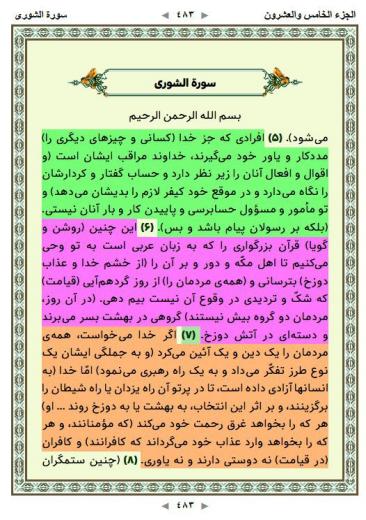 الجزء الخامس والعشرون
٤٨٣
سورة الشورى
سورة الشورى
بسم الله الرحمن الرحیم
می‌شود). (۵) افرادی که جز خدا (کسانی و چیزهای دیگری را)
مددکار و یاور خود می‌گیرند، خداوند مراقب ایشان است (و
اقوال و افعال آنان را زیر نظر دارد و حساب گفتار و کردارشان
را نگاه می‌دارد و در موقع خود کیفر لازم را بدیشان می‌دهد) و
تو مأمور و مسؤول حسابرسی و پاییدن کار و بار آنان نیستی.
(بلکه بر رسولان پیام باشد و بس). (۶) این چنین (روشن و
گویا) قرآن بزرگواری را که به زبان عربی است به تو وحی
می‌کنیم تا اهل مکّه و دور و بر آن را (از خشم خدا و عذاب
دوزخ) بترسانی و (همه‌ی مردمان را) از روز گردهم‌آیی (قیامت)
که شکّ و تردیدی در وقوع آن نیست بیم دهی. (در آن روز،
مردمان دو گروه بیش نیستند) گروهی در بهشت بسر می‌برند
و دسته‌ای در آتش دوزخ. (۷) اگر خدا می‌خواست، همه‌ی
مردمان را یک دین و یک آئین می‌کرد (و به جملگی ایشان یک
نوع طرز تفکّر می‌داد و به یک راه رهبری می‌نمود) امّا خدا (به
انسانها آزادی داده است، تا در پرتو آن راه یزدان یا راه شیطان را
برگزینند، و بر اثر این انتخاب، به بهشت یا به دوزخ روند ... او)
هر که را بخواهد غرق رحمت خود می‌کند (که مؤمنانند، و هر
که را بخواهد وارد عذاب خود می‌گرداند که کافرانند) و کافران
(در قیامت) نه دوستی دارند و نه یاوری. (۸) (چنین ستمگران
٤٨٣